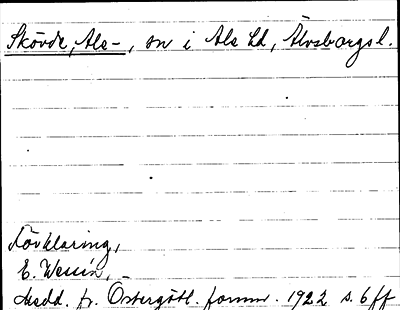 Skövde, Ale-, sn i Ale hd, Älvsborgs l.
Förklaring,
E. Wessén, -
Medd. fr. Östergötl. fornm. 1922 s. 6 ff